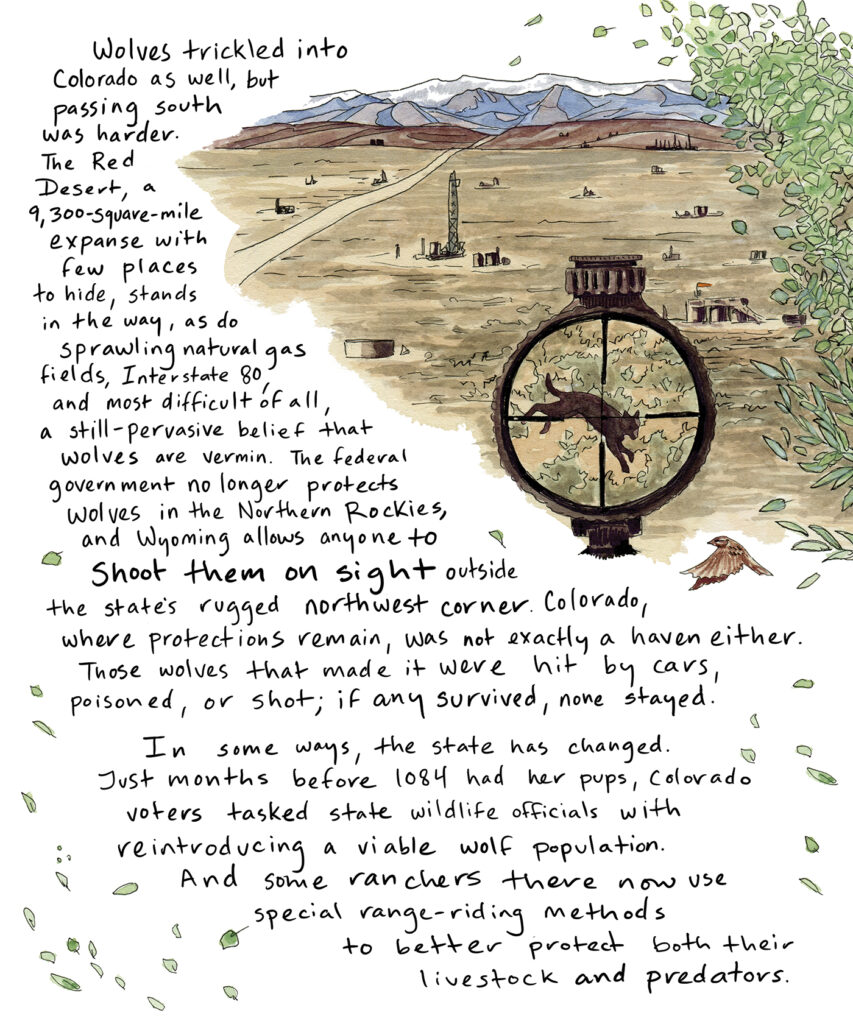 Wolves trickled into
Colorado as well, but
passing south
was harder.
The Red
Desert, a
9,300-square-mile
expanse with
few places
to hide, stands
in the way, as do
sprawling natural gas
fields, Interstate 80,
and most difficult of all,
a still-pervasive belief that
wolves are vermin. The federal
government no longer protects
wolves in the Northern Rockies,
and Wyoming allows anyone to
shoot them on sight outside
the state's rugged northwest corner. Colorado,
where protections remain, was not exactly a haven either.
Those wolves that made it were hit by cars,
poisoned, or shot; if any survived, none stayed.
In some ways, the state has changed.
Just months before 1084 had her pups, Colorado
voters tasked state wildlife officials with
reintroducing a viable wolf population.
And some ranchers there now use
special range-riding methods
to better protect both their
livestock and predators.